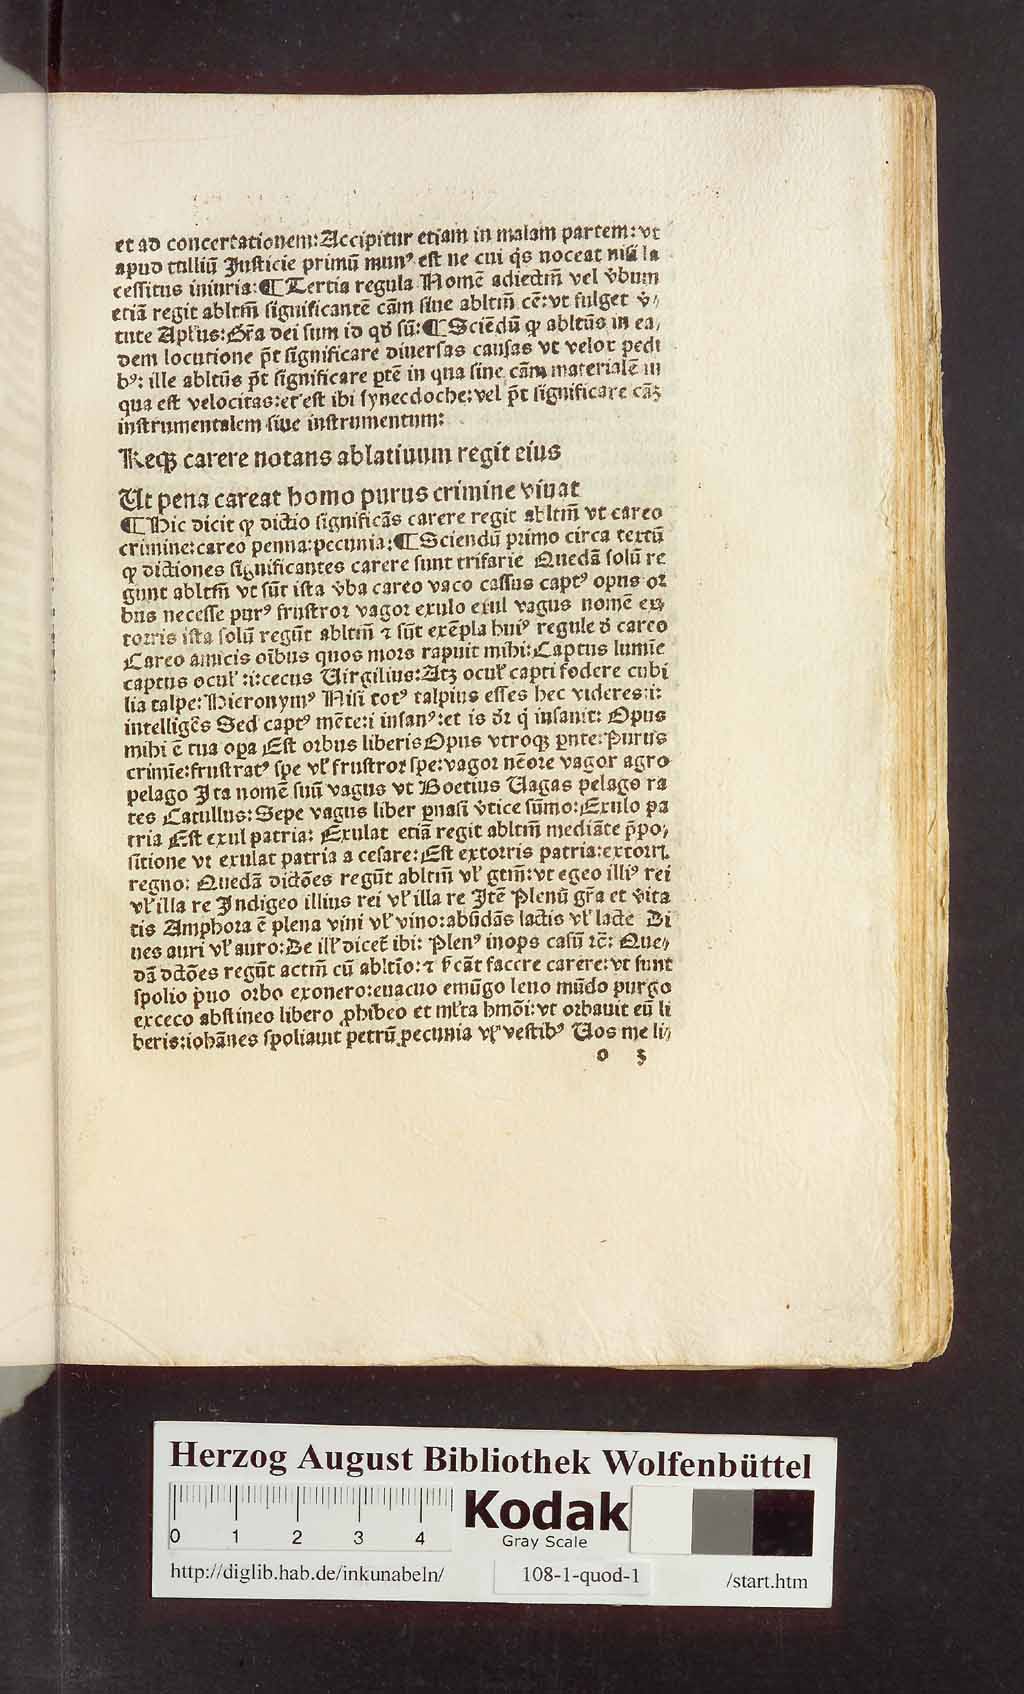 et ad concertationem: Accipitur etiam in malam partem: vt
apud tulliū Justicie primū munꝰ est ne cui q̇s noceat nisi la
cessitus iniuria: ¶ Tertia regula Nomē adiectm̄ vel v̓bum
etiā regit abltm̄ significantē cām siue abltm̄ cē: vt fulget v̓⸗
tute Aplus: Gr̄a dei sum id qd̓ sū: ¶ Sciēdū ꝙ abltūs in ea⸗
dem locutione p̄t significare diuersas causas vt velox pedi
bꝰ: ille abltūs p̄t significare ptē in qua siue cām materialē in
qua est velocitas: et est ibi synecdoche: vel p̄t significare cāꝫ
instrumentalem siue instrumentum:
Reqꝫ carere notans ablatiuum regit eius
Ut pena careat homo purus crimine viuat
¶ Hic dicit ꝙ dictio significās carere regit abltm̄ vt careo
crimine: careo penna: pecunia: ¶ Sciendū primo circa textū
ꝙ dictiones significantes carere sunt trifarie Quedā solū re
gunt abltm̄ vt sūt ista v̓ba careo vaco cassus captꝰ opus or
bus necesse purꝰ frustror vagor exulo exul vagus nomē ex
torris ista solū regūt abltm̄ ⁊ sūt exēpla huiꝰ regule d̓ careo
Careo amicis oībus quos mors rapuit mihi: Captus lumīe
captus oculꝭ :i: cecus Uirgilius: Atꝫ oculꝭ capti fodere cubi
lia talpe: Hieronymꝰ Nisi totꝰ talpius esses hec videres: i:
intelligēs Sed captꝰ mēte: i insanꝰ: et is dr̄ q̇ insanit: Opus
mihi ē tua opa Est orbus liberis Opus vtroqꝫ pnte: Purus
crimīe: frustratꝰ spe vl̓ frustror spe: vagor nēore vagor agro
pelago Ita nomē suū vagus vt Boetius Uagas pelago ra
tes Catullus: Sepe vagus liber pnasi v̓tice sūmo: Exulo pa
tria Est exul patria: Exulat etiā regit abltm̄ mediāte p̄po⸗
sitione vt exulat patria a cesare: Est extorris patria: extorrꝭ
regno: Quedā dictōes regūt abltm̄ vl̓ gtm̄: vt egeo illiꝰ rei
vl̓ illa re Indigeo illius rei vl̓ illa re Itē Plenū gr̄a et v̓ita
tis Amphora ē plena vini vl̓ vino: abūdās lactis vl̓ lacte Di
ues auri vl̓ auro: De illꝭ dicet̄ ibi: Plenꝰ inops casū ⁊c̄: Que⸗
dā dctōes regūt actm̄ cū abltīo: ⁊ s̓cāt facere carere: vt sunt
spolio p̓uo orbo exonero: euacuo emūgo leno mūdo purgo
exceco abstineo libero ꝓhibeo et ml̓ta hmōi: vt orbauit eū li
beris: iohānes spoliauit petrū pecunia vl̓ vestibꝰ Uos me li⸗
o 3
Herzog August Bibliothek Wolfenbüttel
0 1 2 3 4
Kodak
Gray Scale
http://diglib.hab.de/inkunabeln/ 108-1-quod-1 /start.htm